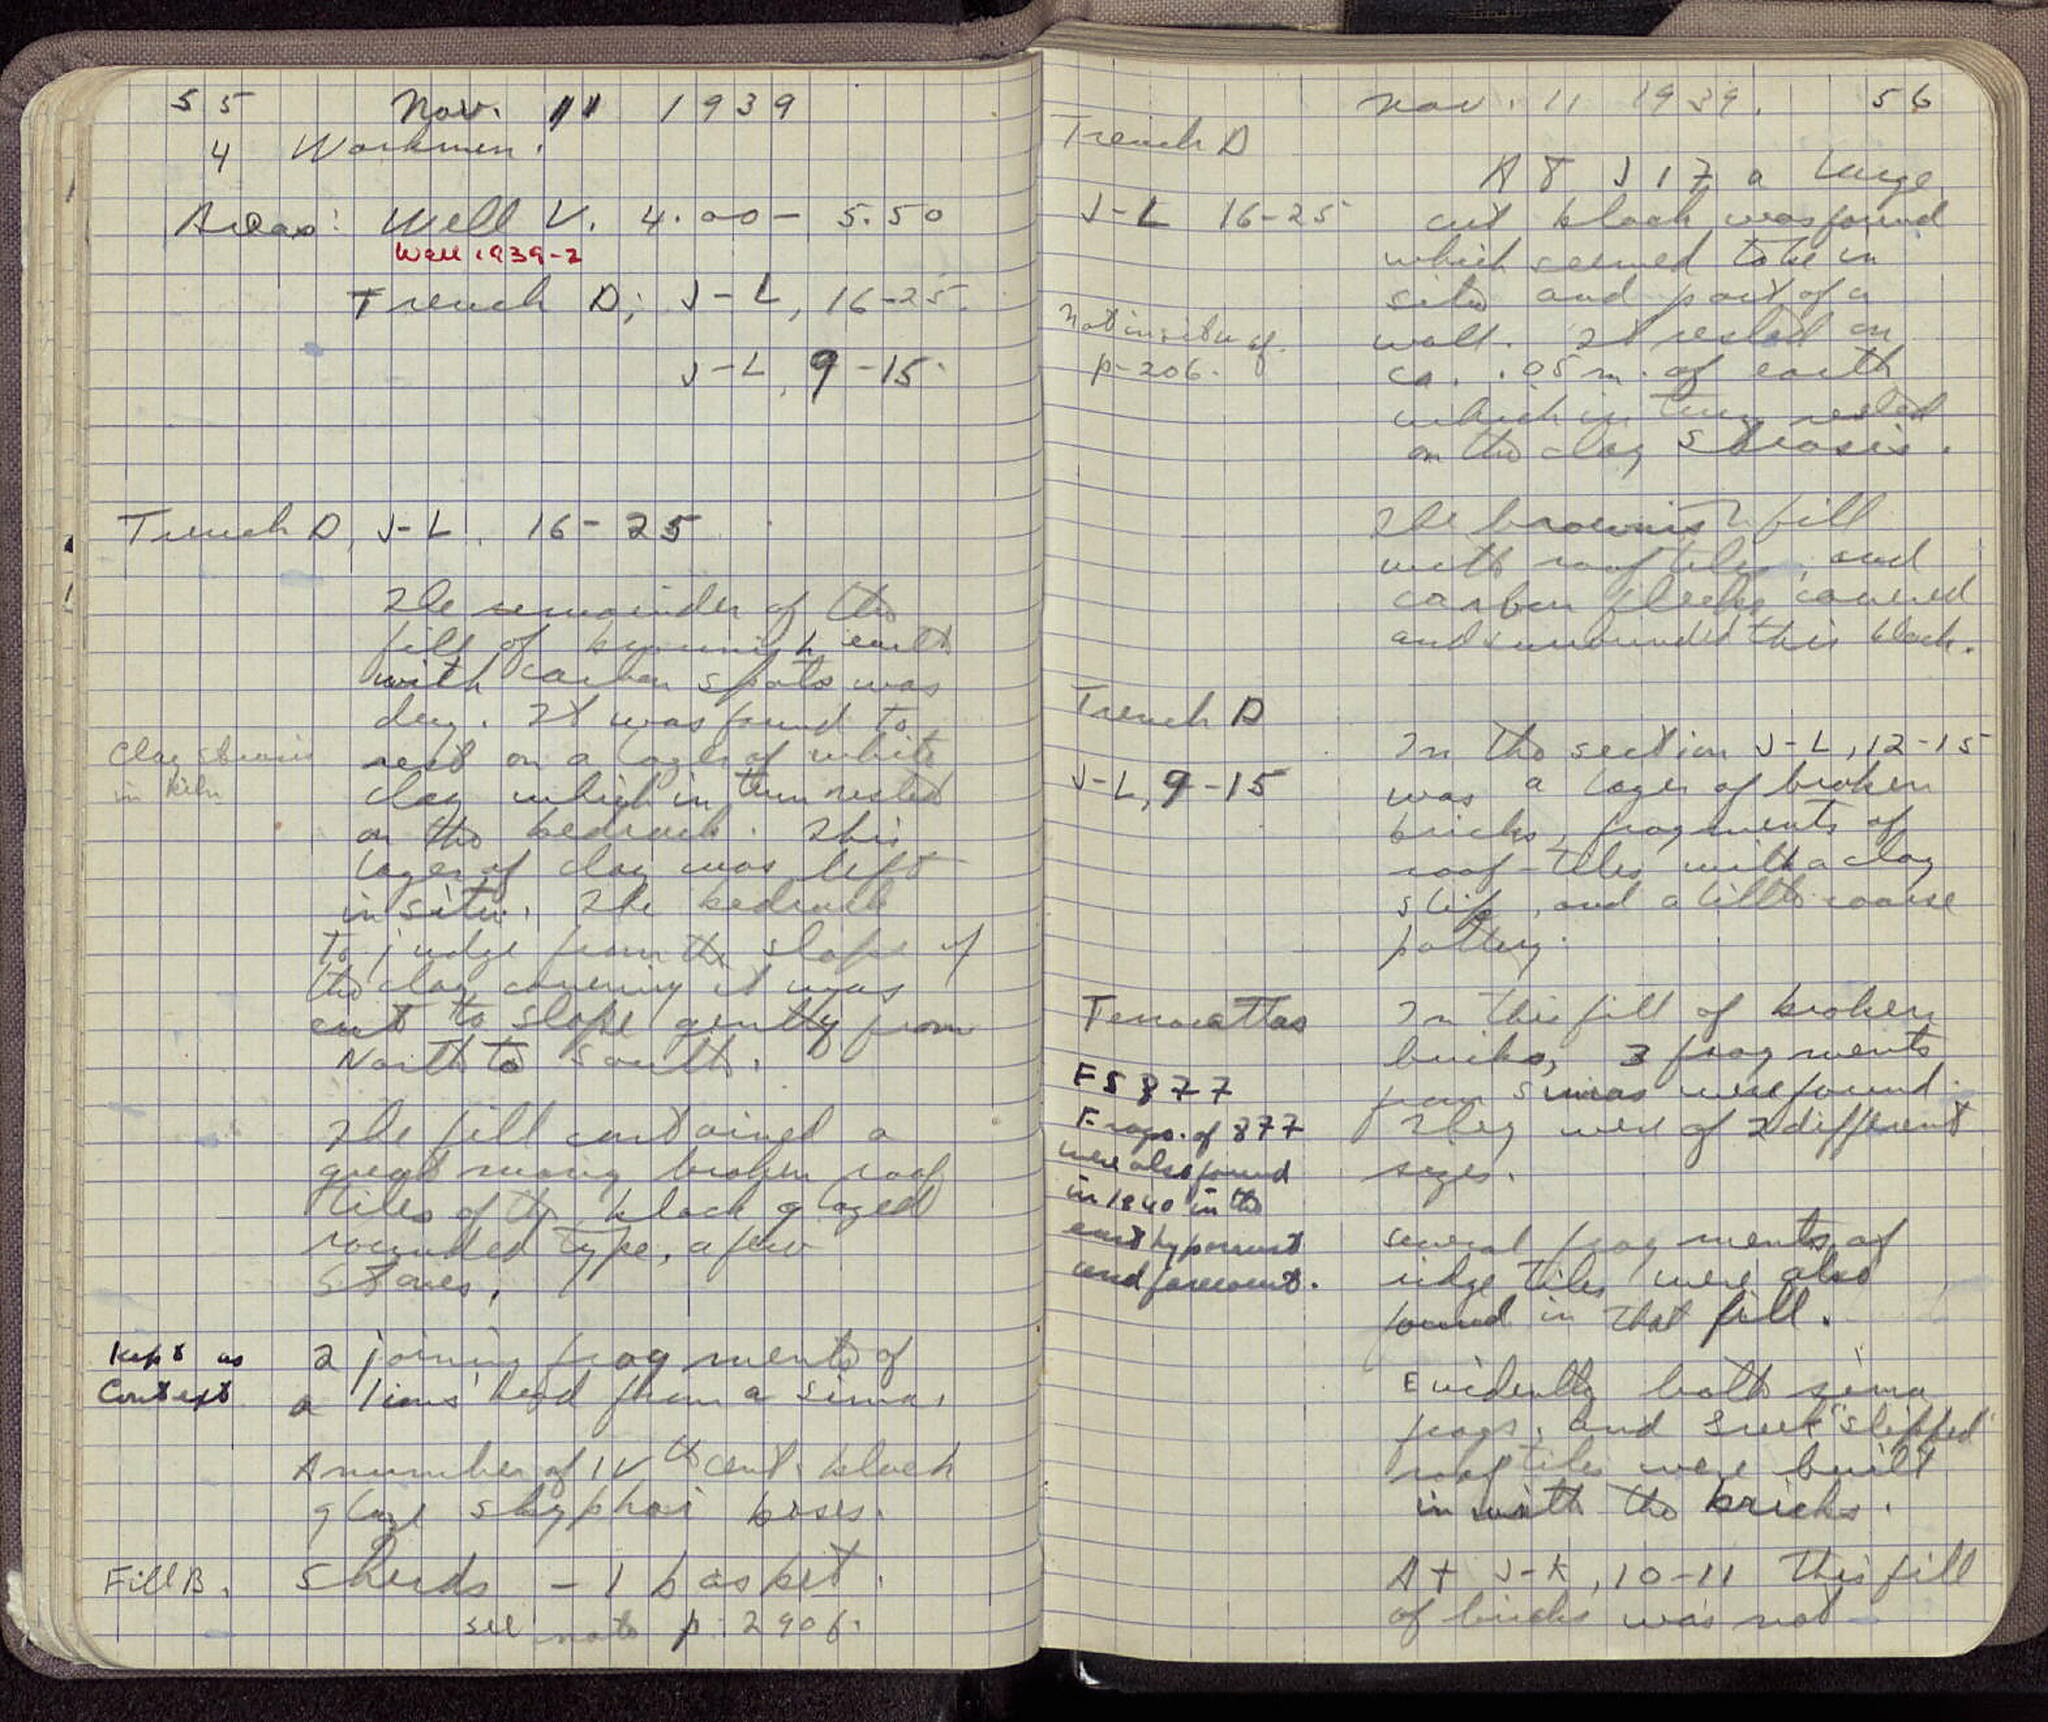 55 Nov. 11 1939
4 Workmen.
Areas: Well V. 4.00 - 5.50
Well 1939-2
Trench D; J-L, 16-25.
J-L, 9-15.
Trench D, J-L, 16-25
The remainder of the
fill of brownish earth
with carbon spots was
dug. It was found to
Clay strosis
rest on a layer of white
in kiln
clay which in turn rested
on the bedrock. This
layer of clay was left
in situ. The bedrock
to judge from the slope of
the clay covering it was
cut to slope gently from
North to South.
The fill contained a
great many broken roof
tiles of the black glazed
rounded type, a few
stones.
Kept as
Context
2 joining fragments of
a lions' head from a sima.
A number of IVth cent. black
glaze skyphoi bases.
Fill B.
Sherds - 1 basket.
see note p. 290 f.
Nov. 11 1939. 56
Trench D
J-L 16-25
At J 17 a large
cut block was found
which seemed to be in
situ and part of a
Not in situ cf.
p-206.
wall. It rested on
ca. .05 m. of earth
which in turn rested
on the clay strosis.
The brownish fill
with roof tiles, and
carbon flecks covered
and surrounded this block.
Trench D
J-L, 9-15
In the section J-L, 12-15
was a layer of broken
bricks, fragments of
roof-tiles with a clay
slip, and a little coarse
pottery.
Terracottas
In this fill of broken
bricks, 3 fragments
from simas were found.
They were of 2 different
sizes.
FS 877
Frags. of 877
were also found
in 1940 in the
east hypocaust
and forecourt.
Several fragments of
ridge tiles were also
found in that fill.
Evidently both sima
frags. and Greek "slipped"
roof tiles were built
in with the bricks.
At J-K, 10-11 this fill
of bricks was not